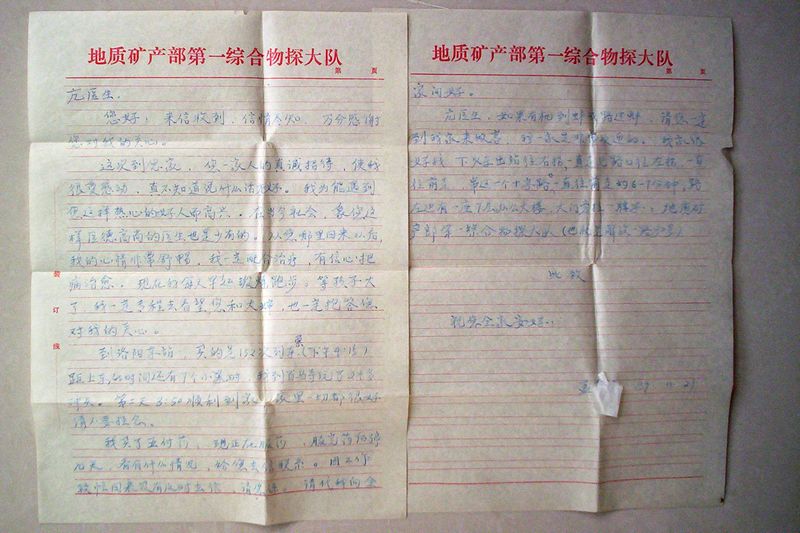 地质矿产部第一综合物探大队
第 页
您好！来信收到，信情令知，万分感谢
您对我的关心。
这次到您家，您一家人的真诚招待，使我
很受感动，真不知道说什么话为好。我为能遇到
您这样热心的好人而高兴。在当今社会，象您这
样医德高尚的医生也是少有的。从您那里回来以后，
我的心情非常舒畅，我一定配合治疗，有信心把
病治愈。现在我每天早起坚持跑步。等孩子大
了，我一定专程去看望您和大嫂，也一定报答您
对我的关心。
到洛阳东站，买的是152次列车
距上车的时间还有7个小时，我到白马寺玩了2个多
小时。第二天 顺利到家，家里一切都很好
请不要挂念。
我买了五付药，现正在服药，服完药后停
几天，看有什么情况，给您去信联系。因工作
较忙回来没有及时去信，请原谅。请代我向全
装
订
线
地质矿产部第一综合物探大队
第 页
家问好。
医生，如果有机到蚌或路过蚌，请您一定
到我家来做客，我一家是非常欢迎的。我家很
好找，下火车出站往右拐，一直走到路口往左拐，一直
往前走，穿过一个十字路，一直往前走约6-7分钟，路
左边有一座 办公大楼，大门旁挂一牌子：地质矿
产部第一综合物探大队
此致
祝您全家安好！
89 11 21